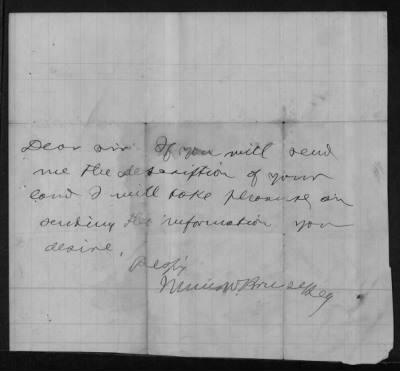 Dear sir If you will send
me the description of your
land I will take pleasure in
sending the information you
desire.
Resp'y